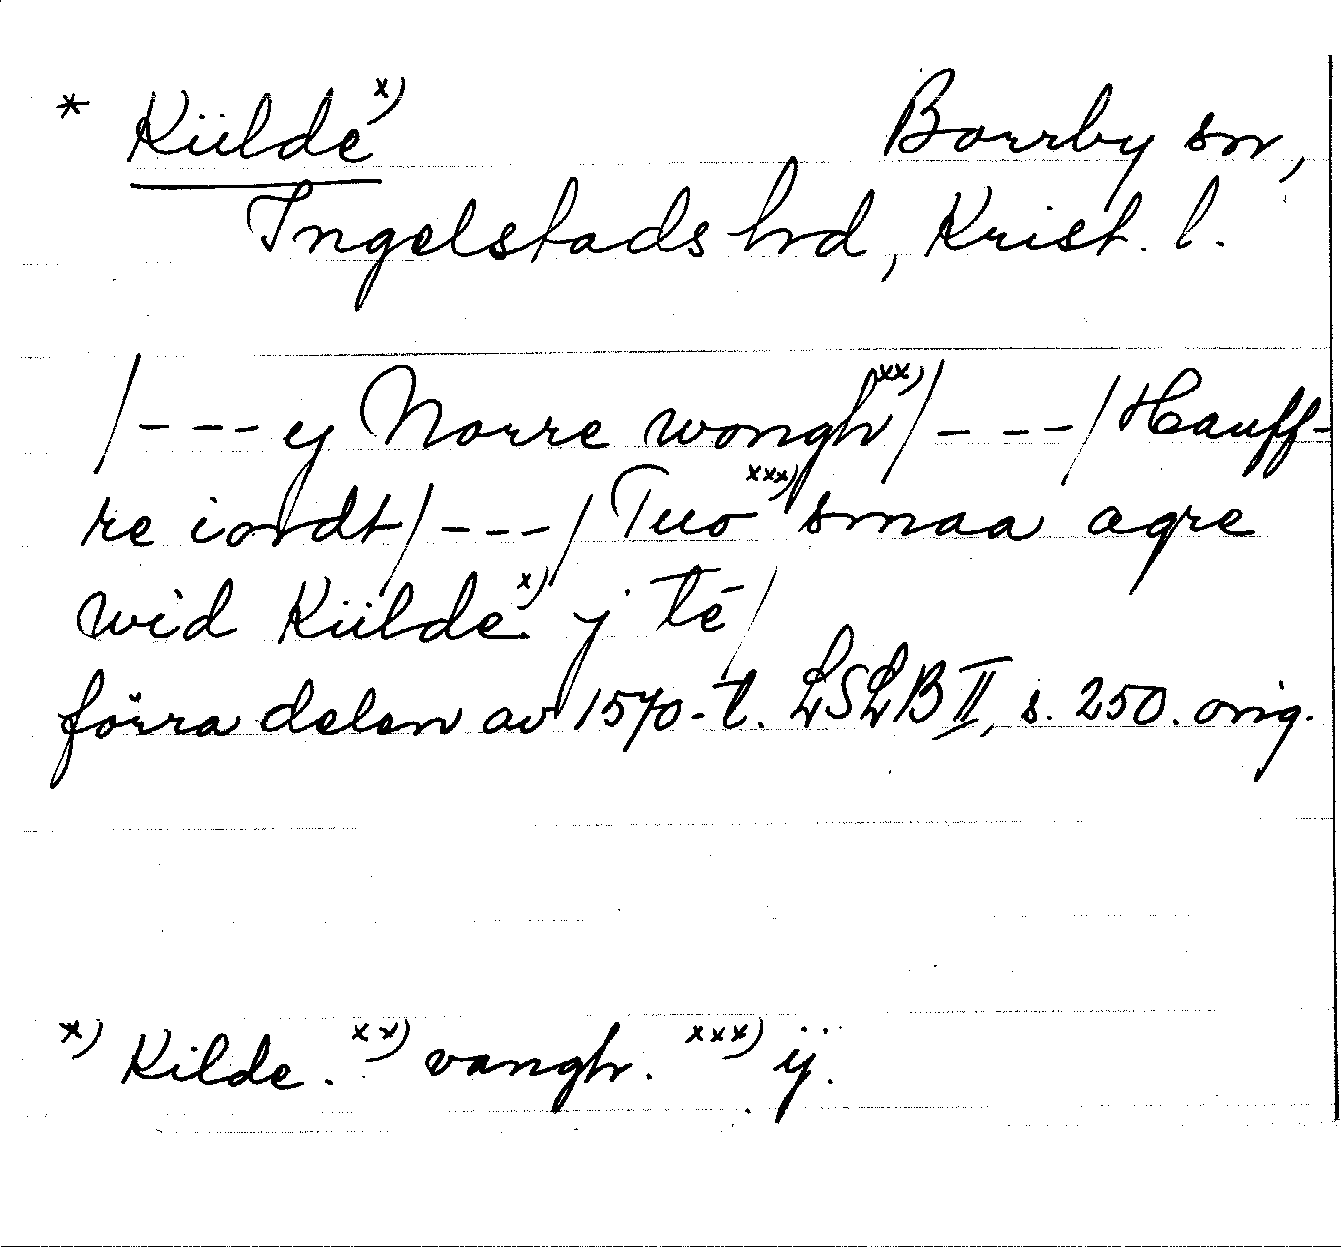 * Kiilde x) Borrby sn,
Ingelstads hrd, Krist. l.
/---ej Norre wongh xx)/---/Hauff-
re iordt/---/Tuo xxx) smaa agre
wid Kiilde x) j té/
förra delen av 1570-t. LSLB II, s. 250. orig.
x) Kilde. xx) vangh. xxx) ij.